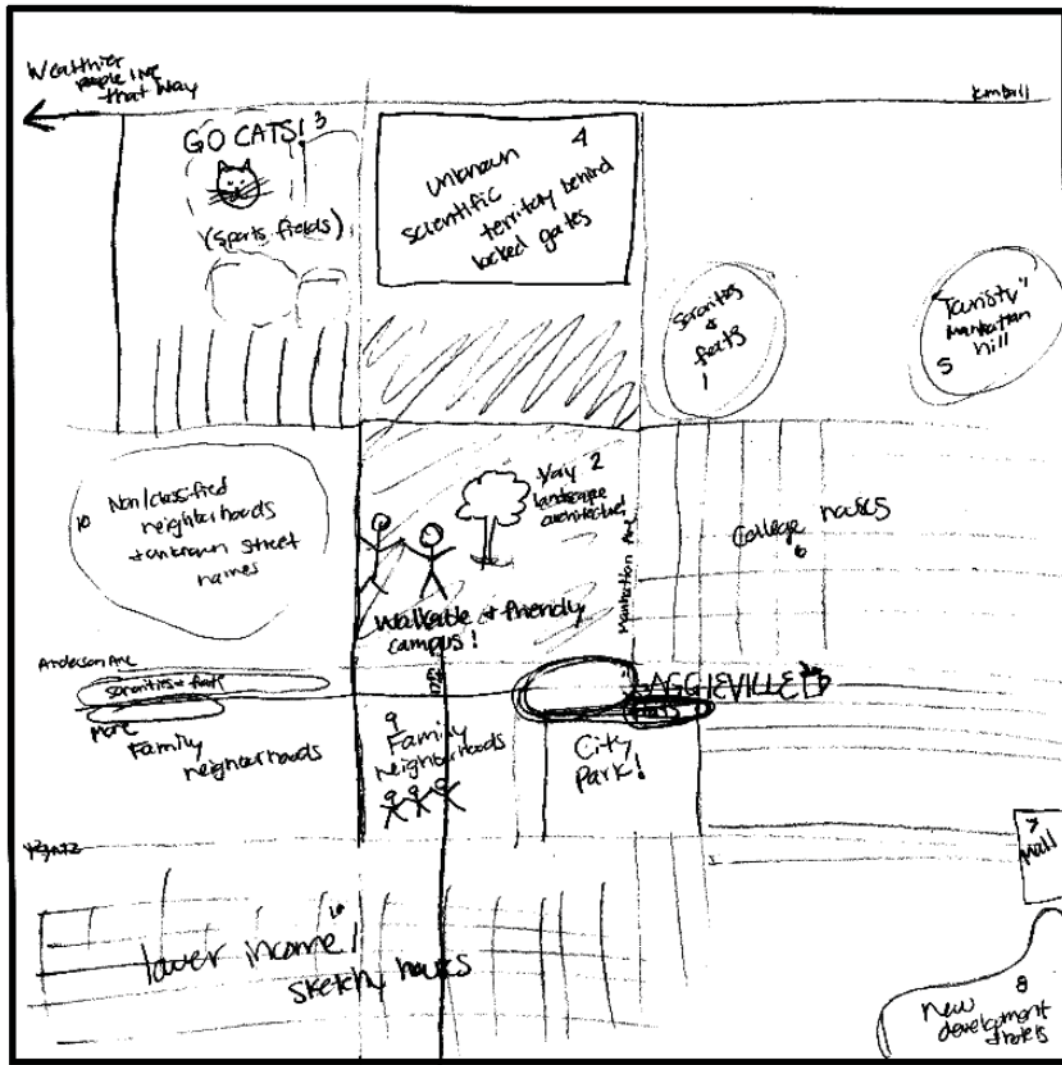 Wealthier
people live
that way
Kimball
GO CATS! 3
(sports fields)
4
unknown
scientific
territory behind
locked gates
Sororities
&
frats
1
"Touristy"
Manhattan
hill
5
10 Non/classified
neighborhoods
+ unknown street
names
Yay 2
landscape
architecture!
Walkable + friendly
campus!
Manhattan Ave
College houses
6
Anderson Ave
sororities + frats
More
Family
neighborhoods
9
Family
neighborhoods
AGGIEVILLE
City
Park!
Poyntz
7
Mall
lower income!
sketchy houses
8
new
development
+ hotels